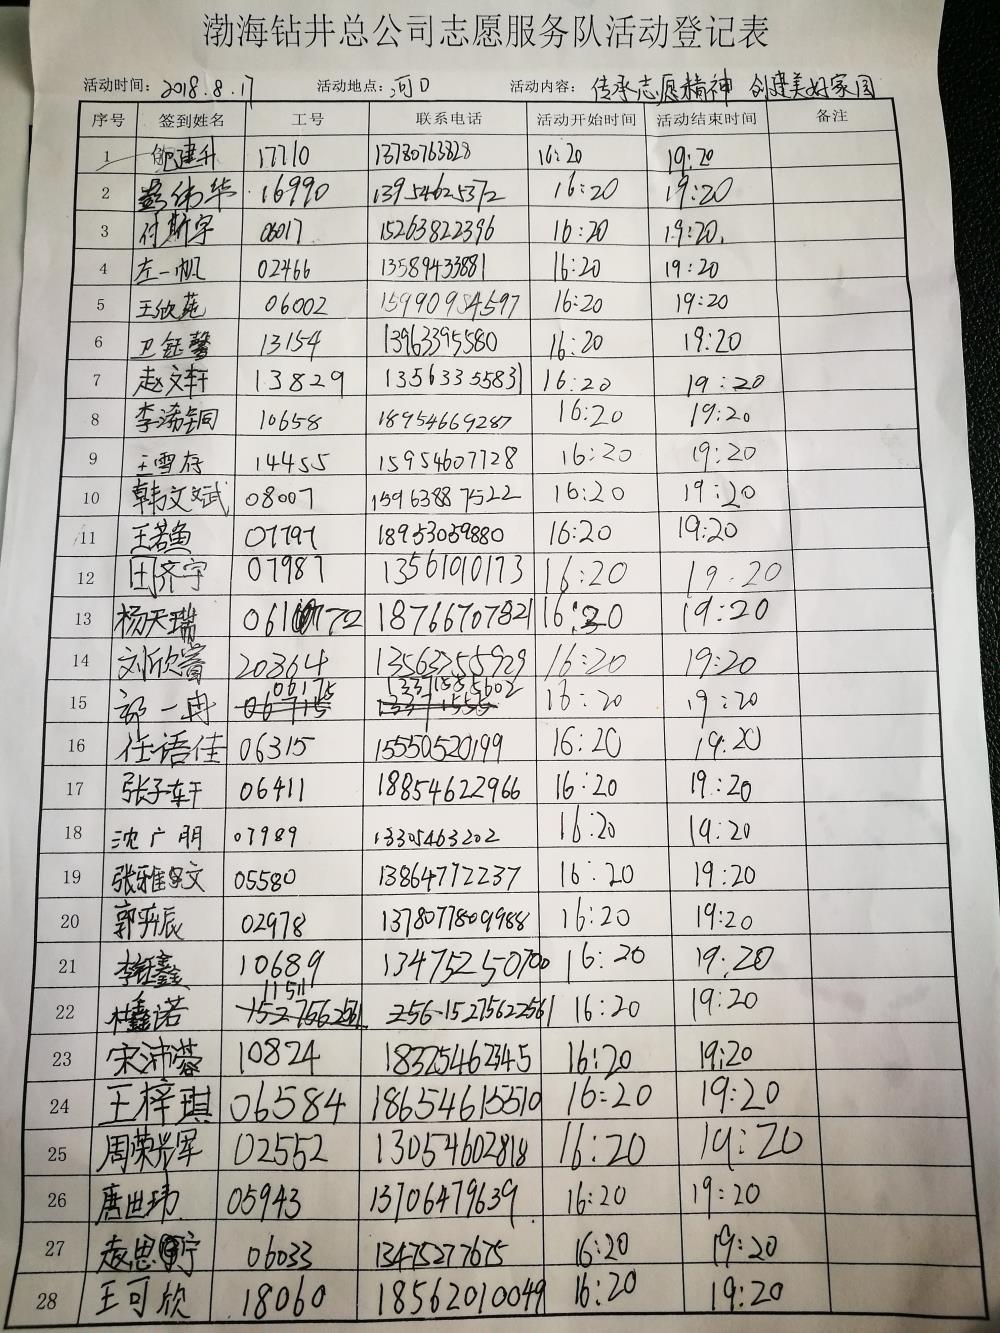 渤海钻井总公司志愿服务队活动登记表
活动时间：2018.8.17 活动地点：河口 活动内容：传承志愿精神 创建美好家园
序号 签到姓名 工号 联系电话 活动开始时间 活动结束时间 备注
1 建升 17710 13780763328 16:20 19:20
2 彭伟华 16990 13954625372 16:20 19:20
3 付斯宇 06017 15263822396 16:20 19:20
4 左一帆 02466 13589433881 16:20 19:20
5 王欣苑 06002 15990984597 16:20 19:20
6 卫钰馨 13154 13963395580 16:20 19:20
7 赵文轩 13829 13563355831 16:20 19:20
8 李浠铜 10658 18954669287 16:20 19:20
9 王雪存 14455 15954607728 16:20 19:20
10 韩文斌 08007 15963887522 16:20 19:20
11 王若鱼 07797 18953059880 16:20 19:20
12 田济宇 07987 13561010173 16:20 19.20
13 杨天瑞 18766707821 16:20 19:20
14 刘欣睿 20364 13563255929 16:20 19:20
15 一冉 06175 13371585602 16:20 19:20
16 任语佳 06315 15550520199 16:20 19:20
17 张子轩 06411 18854622966 16:20 19:20
18 沈广明 07989 13305463202 16:20 19:20
19 张雅文 05580 13864772237 16:20 19:20
20 郭奕辰 02978 16:20 19:20
21 李钰鑫 10689 13475250700 16:20 19:20
22 杜鑫诺 11511 15275622561 16:20 19:20
23 宋沛蓉 10824 18325462345 16:20 19:20
24 王梓琪 06584 18654615510 16:20 19:20
25 周荣军 02552 13054602818 16:20 19:20
26 唐世玮 05943 13706479639 16:20 19:20
27 赵思宁 06033 13475277675 16:20 19:20
28 王可欣 18060 18562010049 16:20 19:20